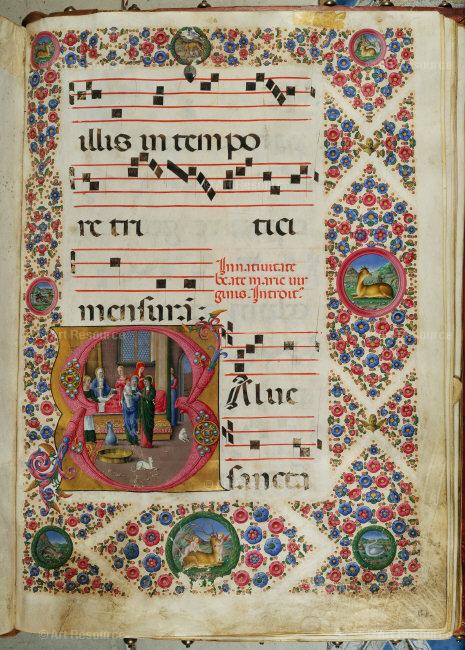 illis in tempo
re tri tici
mensurā:
In natiuitate
beate marie uir
ginis. Introit.
SAlue
sancta
© Art Resource